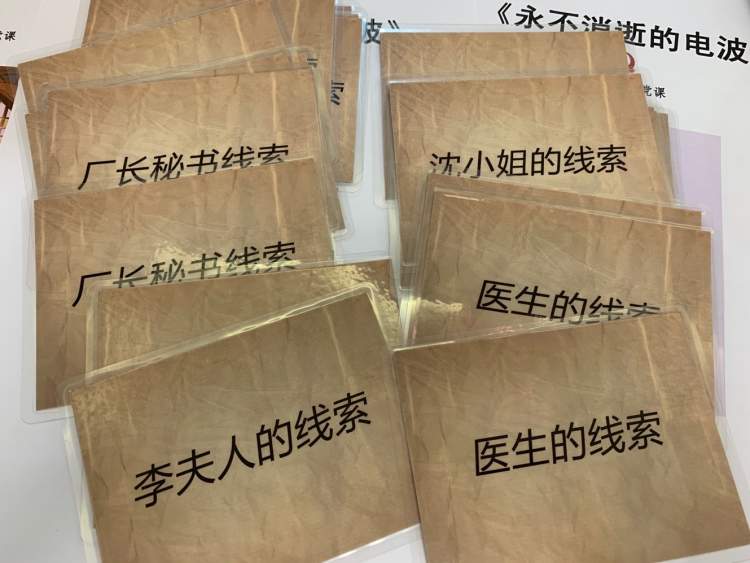 党课
波》
《永不消逝的电波
党课
索
厂长秘书线索
沈小姐的线索
厂长秘书线索
医生的线索
李夫人的线索
医生的线索